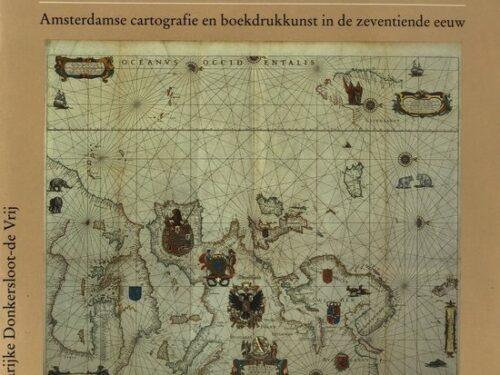 Amsterdamse cartografie en boekdrukkunst in de zeventiende eeuw
OCEANVS OCCIDENTALIS
rijke Donkersloot-de Vrij